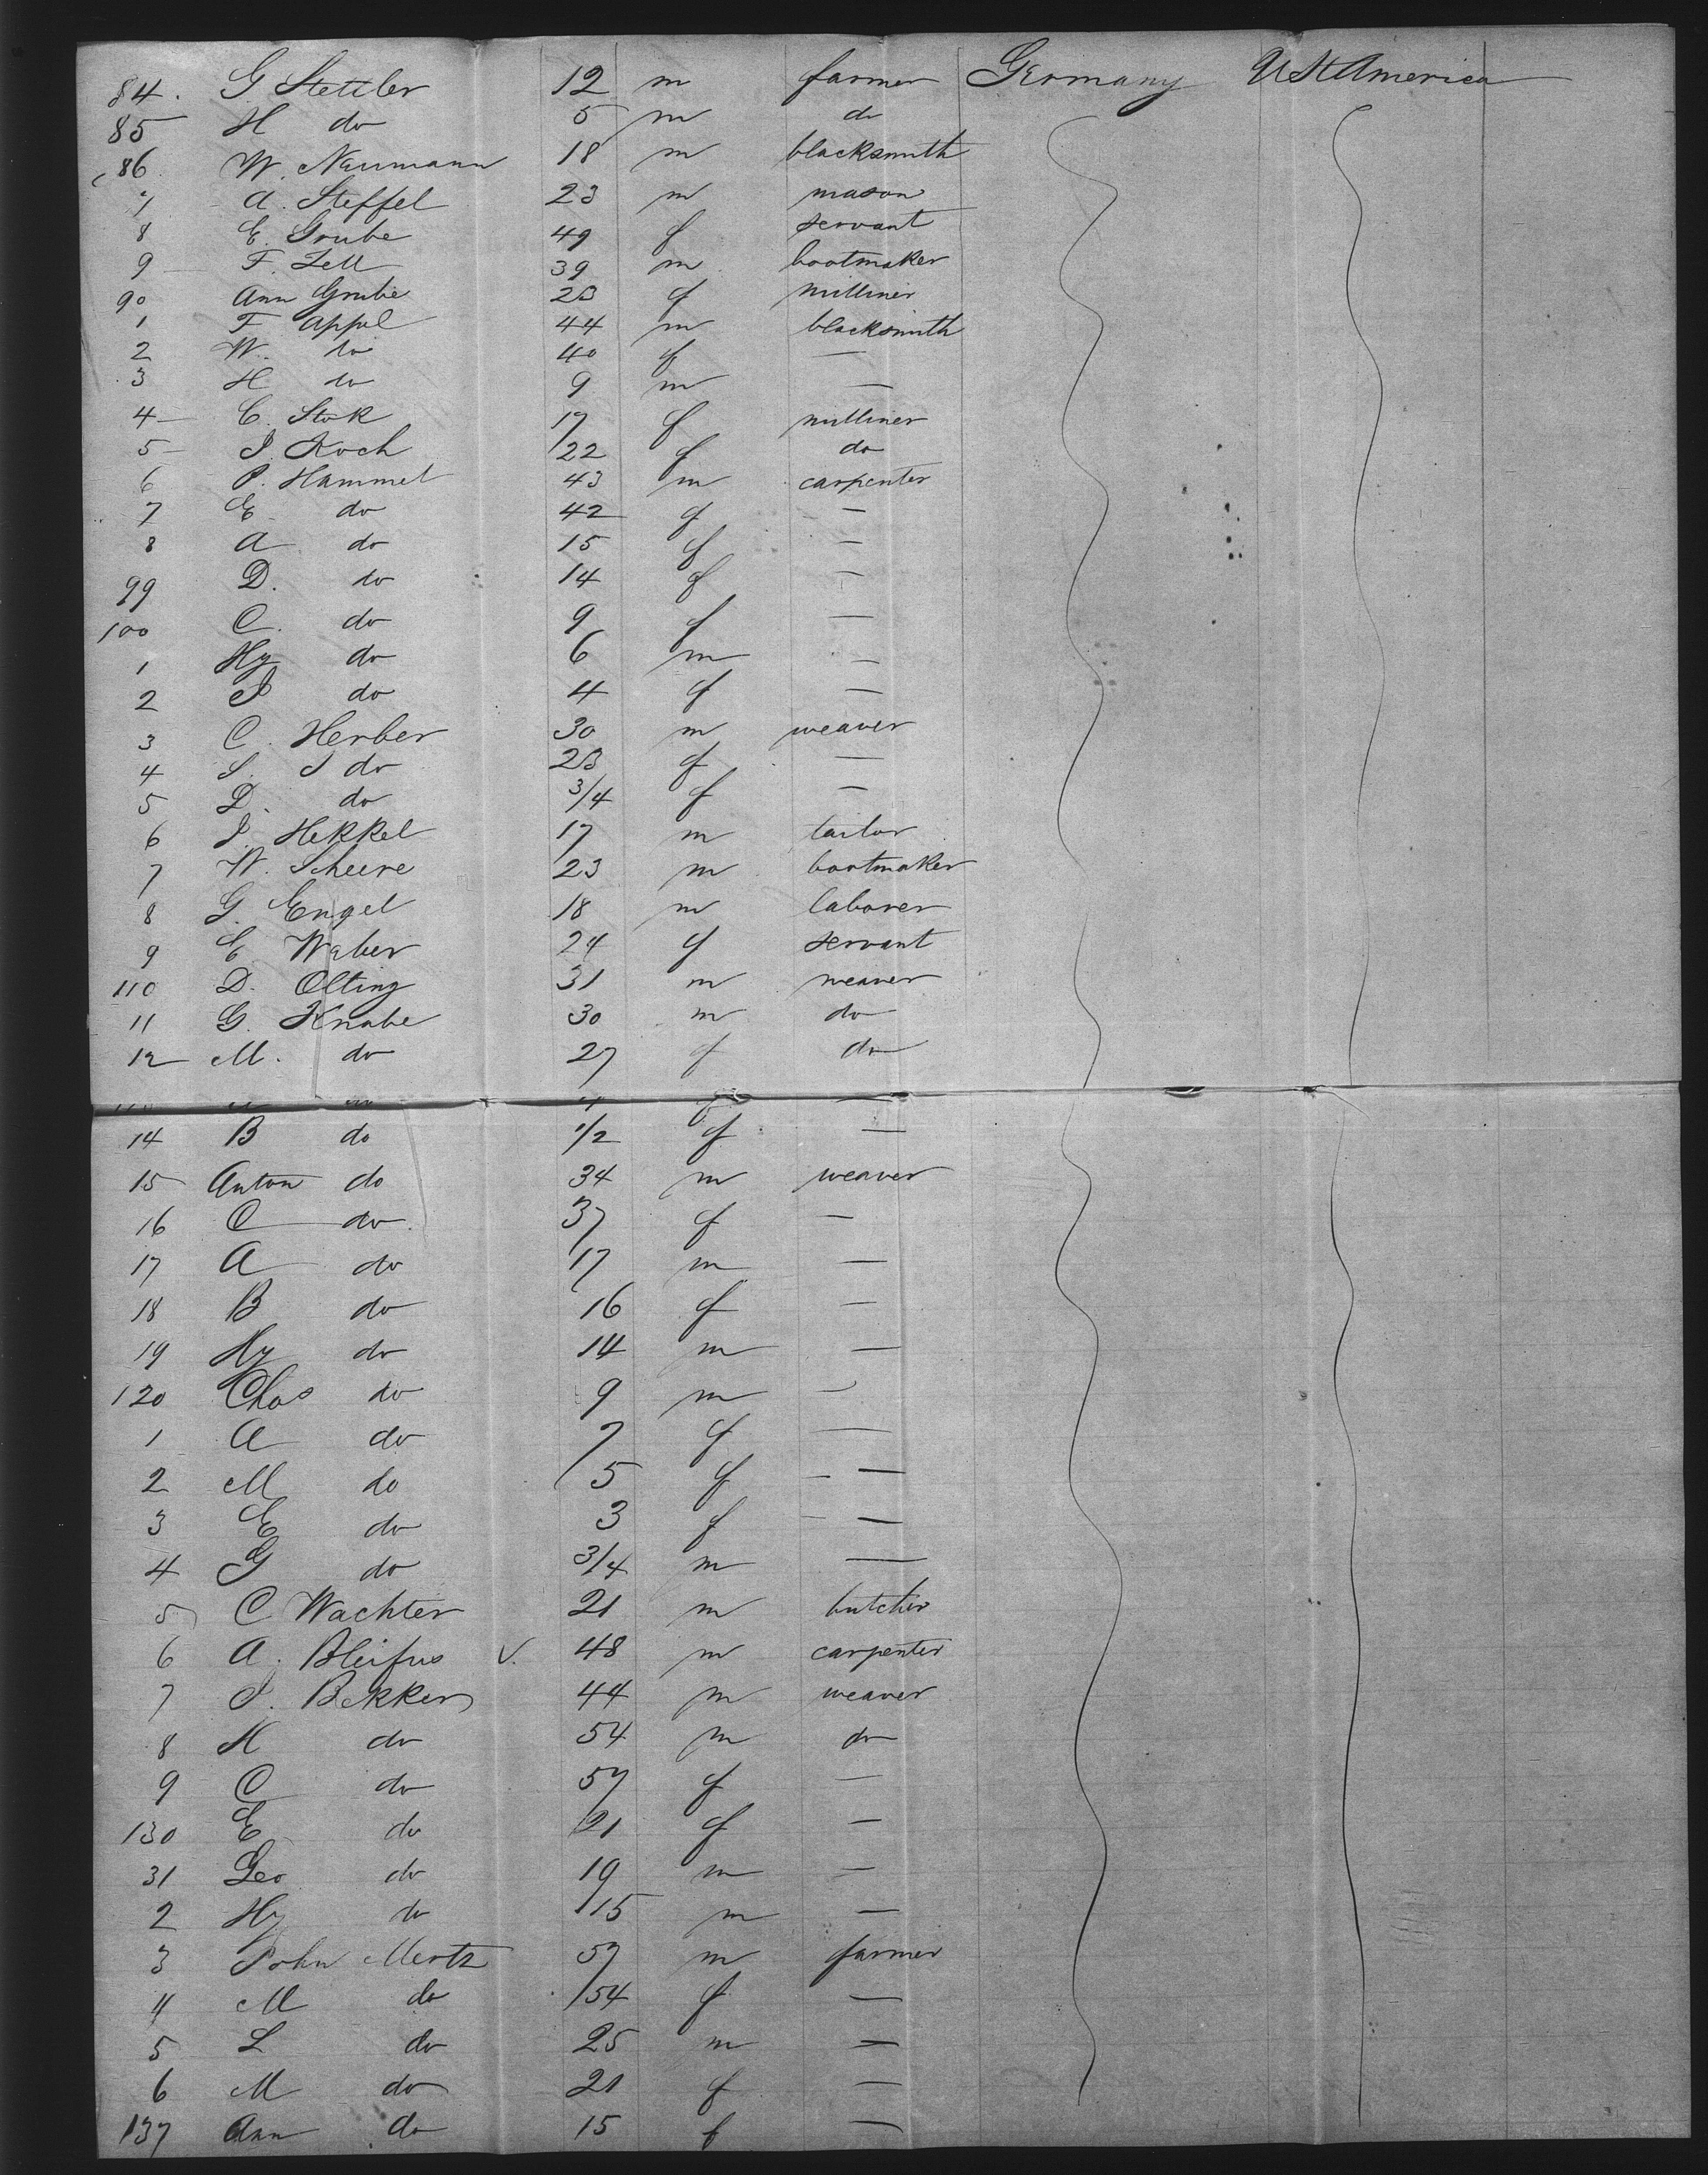 84. G Stettler 12 m farmer Germany U St America
85 H do 5 m do
86. W. Naumann 18 m blacksmith
7 A. Steffel 23 m mason
8 E. Grube 49 f servant
9 F. Zell 39 m bootmaker
90 Ann Grube 23 f milliner
1 F Appel 44 m blacksmith
2 W. do 40 f —
3 H do 9 m —
4 C. Stok 17 f milliner
5 I. Koch 22 f do
6 P. Hammel 43 m carpenter
7 E do 42 f —
8 A do 15 f —
99 D. do 14 f —
100 C. do 9 f —
1 Hy do 6 m —
2 I do 4 f —
3 C. Herber 30 m weaver
4 S. I do 23 f —
5 D. do 3/4 f —
6 I. Hekkel 17 m tailor
7 W. Scheere 23 m bootmaker
8 G. Engel 18 m laborer
9 E Weber 24 f servant
110 D. Olting 31 m weaver
11 G. Knabe 30 m do
12 M. do 27 f do
do f —
14 B do 1/2 f —
15 Anton do 34 m weaver
16 C do 37 f —
17 A do 17 m —
18 B do 16 f —
19 Hy do 14 m —
120 Chas do 9 m —
1 A do 7 f —
2 M do 5 f —
3 E do 3 f —
4 G do 3/4 m —
5 C Wachter 21 m butcher
6 A. Bleifus v. 48 m carpenter
7 I. Bekker 44 m weaver
8 H do 54 m do
9 C do 57 f —
130 E do 21 f —
31 Geo do 19 m —
2 Hy do 15 m —
3 John Mertz 57 m farmer
4 M do 54 f —
5 L do 25 m —
6 M do 21 f —
137 Ann do 15 f —